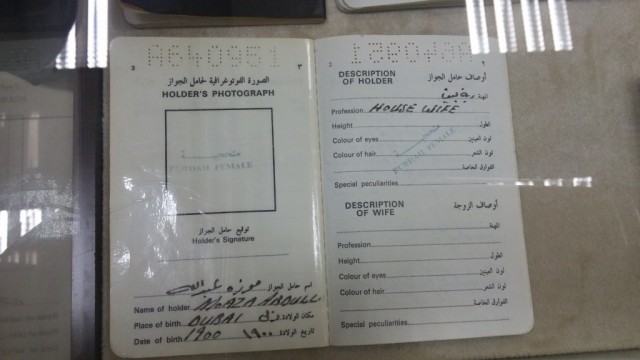 A640951
3 ٣
الصورة الفوتوغرافية لحامل الجواز
HOLDER'S PHOTOGRAPH
متحجبة
PURDAH FEMALE
توقيع حامل الجواز
Holder's Signature
اسم حامل الجواز موزه عبدالله
Name of holder MOAZA ABDULL
مكان الولادة دبي
Place of birth DUBAI
تاريخ الولادة ١٩٠٠
Date of birth 1900
2 ٢
DESCRIPTION OF HOLDER أوصاف حامل الجواز
المهنة ربة بيت
Profession HOUSE WIFE
Height الطول
Colour of eyes لون العينين
Colour of hair لون الشعر
متحجبة
PURDAH FEMALE
Special peculiarities الفوارق الخاصة
DESCRIPTION OF WIFE أوصاف الزوجة
Profession المهنة
Height الطول
Colour of eyes لون العينين
Colour of hair لون الشعر
Special peculiarities الفوارق الخاصة